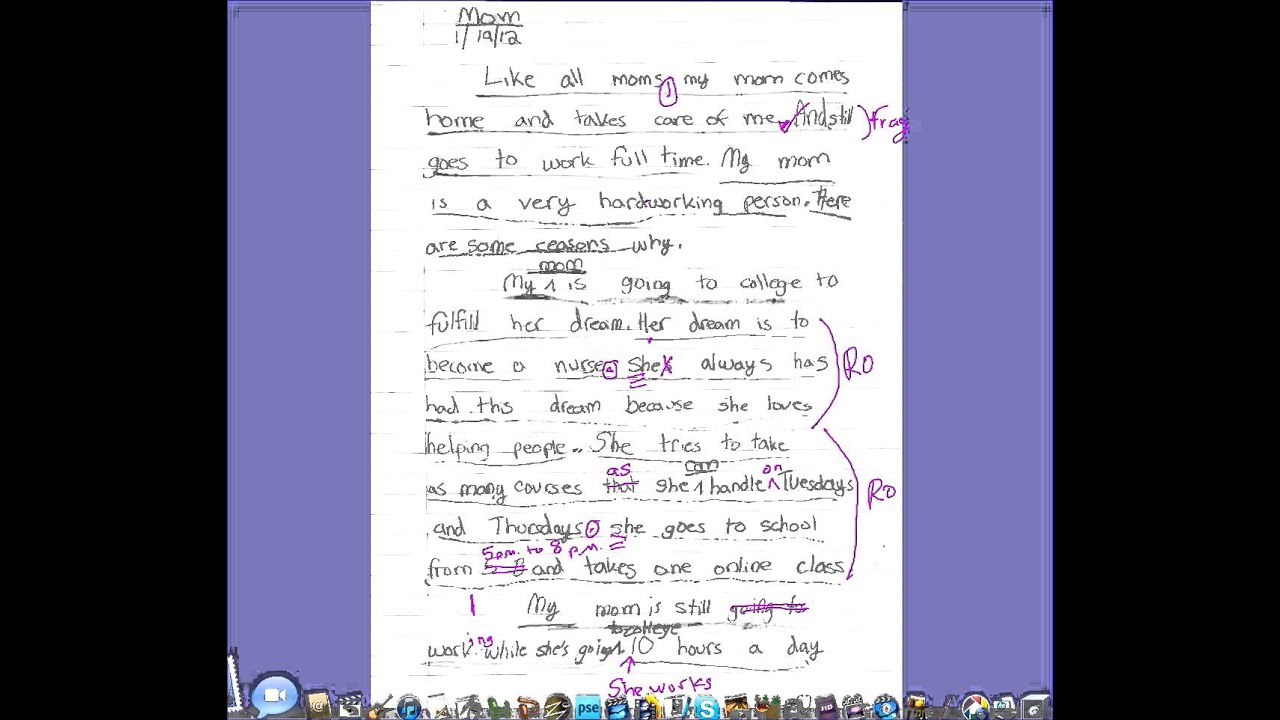 Mom
1/19/12
Like all moms, my mom comes
home and takes care of me. And still ) frag
goes to work full time. My mom
is a very hardworking person. Here
are some reasons why.
mom
My ^ is going to college to
fulfill her dream. Her dream is to
become a nurse. she always has RO
had this dream because she loves
helping people. She tries to take
as can on
as many courses that she ^ handle ^ Tuesdays
RO
and Thursdays. she goes to school
5pm. to 8 p.m.
from 5-8 and takes one online class
My mom is still going to
to college
working while she's going 10 hours a day
She works
pse